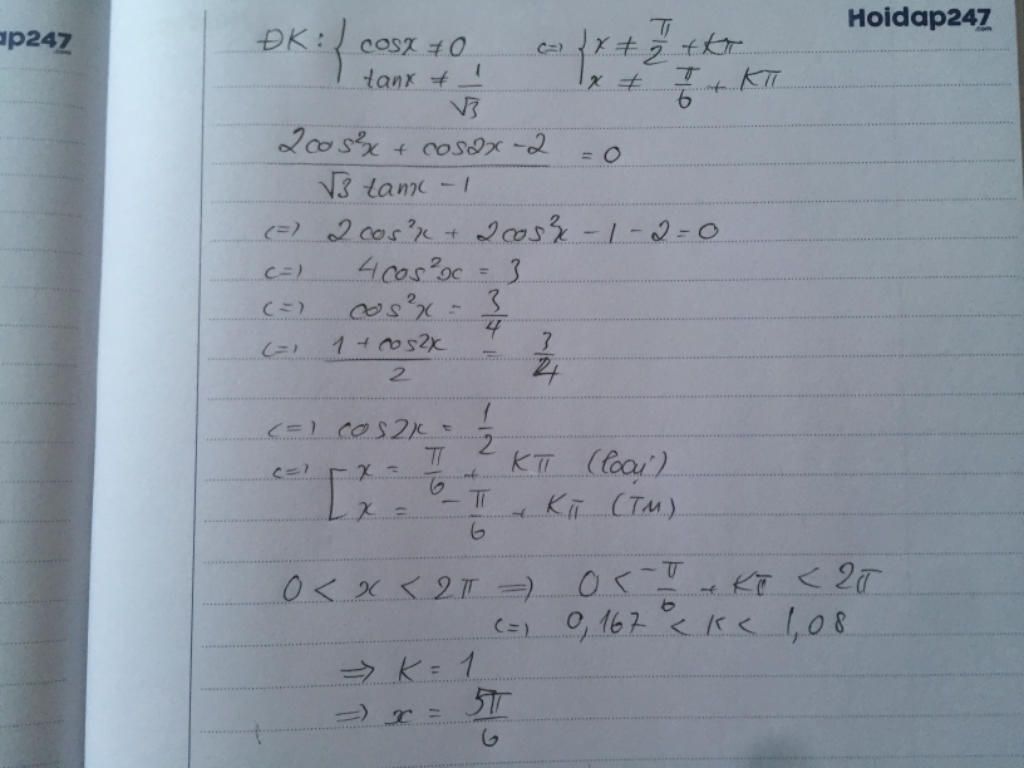 ap247
.com
Hoidap247
.com
ĐK: { cosx ≠ 0 <=> { x ≠ π/2 + Kπ
tanx ≠ 1/√3 x ≠ π/6 + Kπ
(2cos²x + cos2x - 2)/(√3 tanx - 1) = 0
<=> 2cos²x + 2cos²x - 1 - 2 = 0
<=> 4cos²x = 3
<=> cos²x = 3/4
<=> (1 + cos2x)/2 = 3/4
<=> cos2x = 1/2
<=> [ x = π/6 + Kπ (loại)
x = -π/6 + Kπ (TM)
0 < x < 2π => 0 < -π/6 + Kπ < 2π
<=> 0,167 < K < 1,08
=> K = 1
=> x = 5π/6